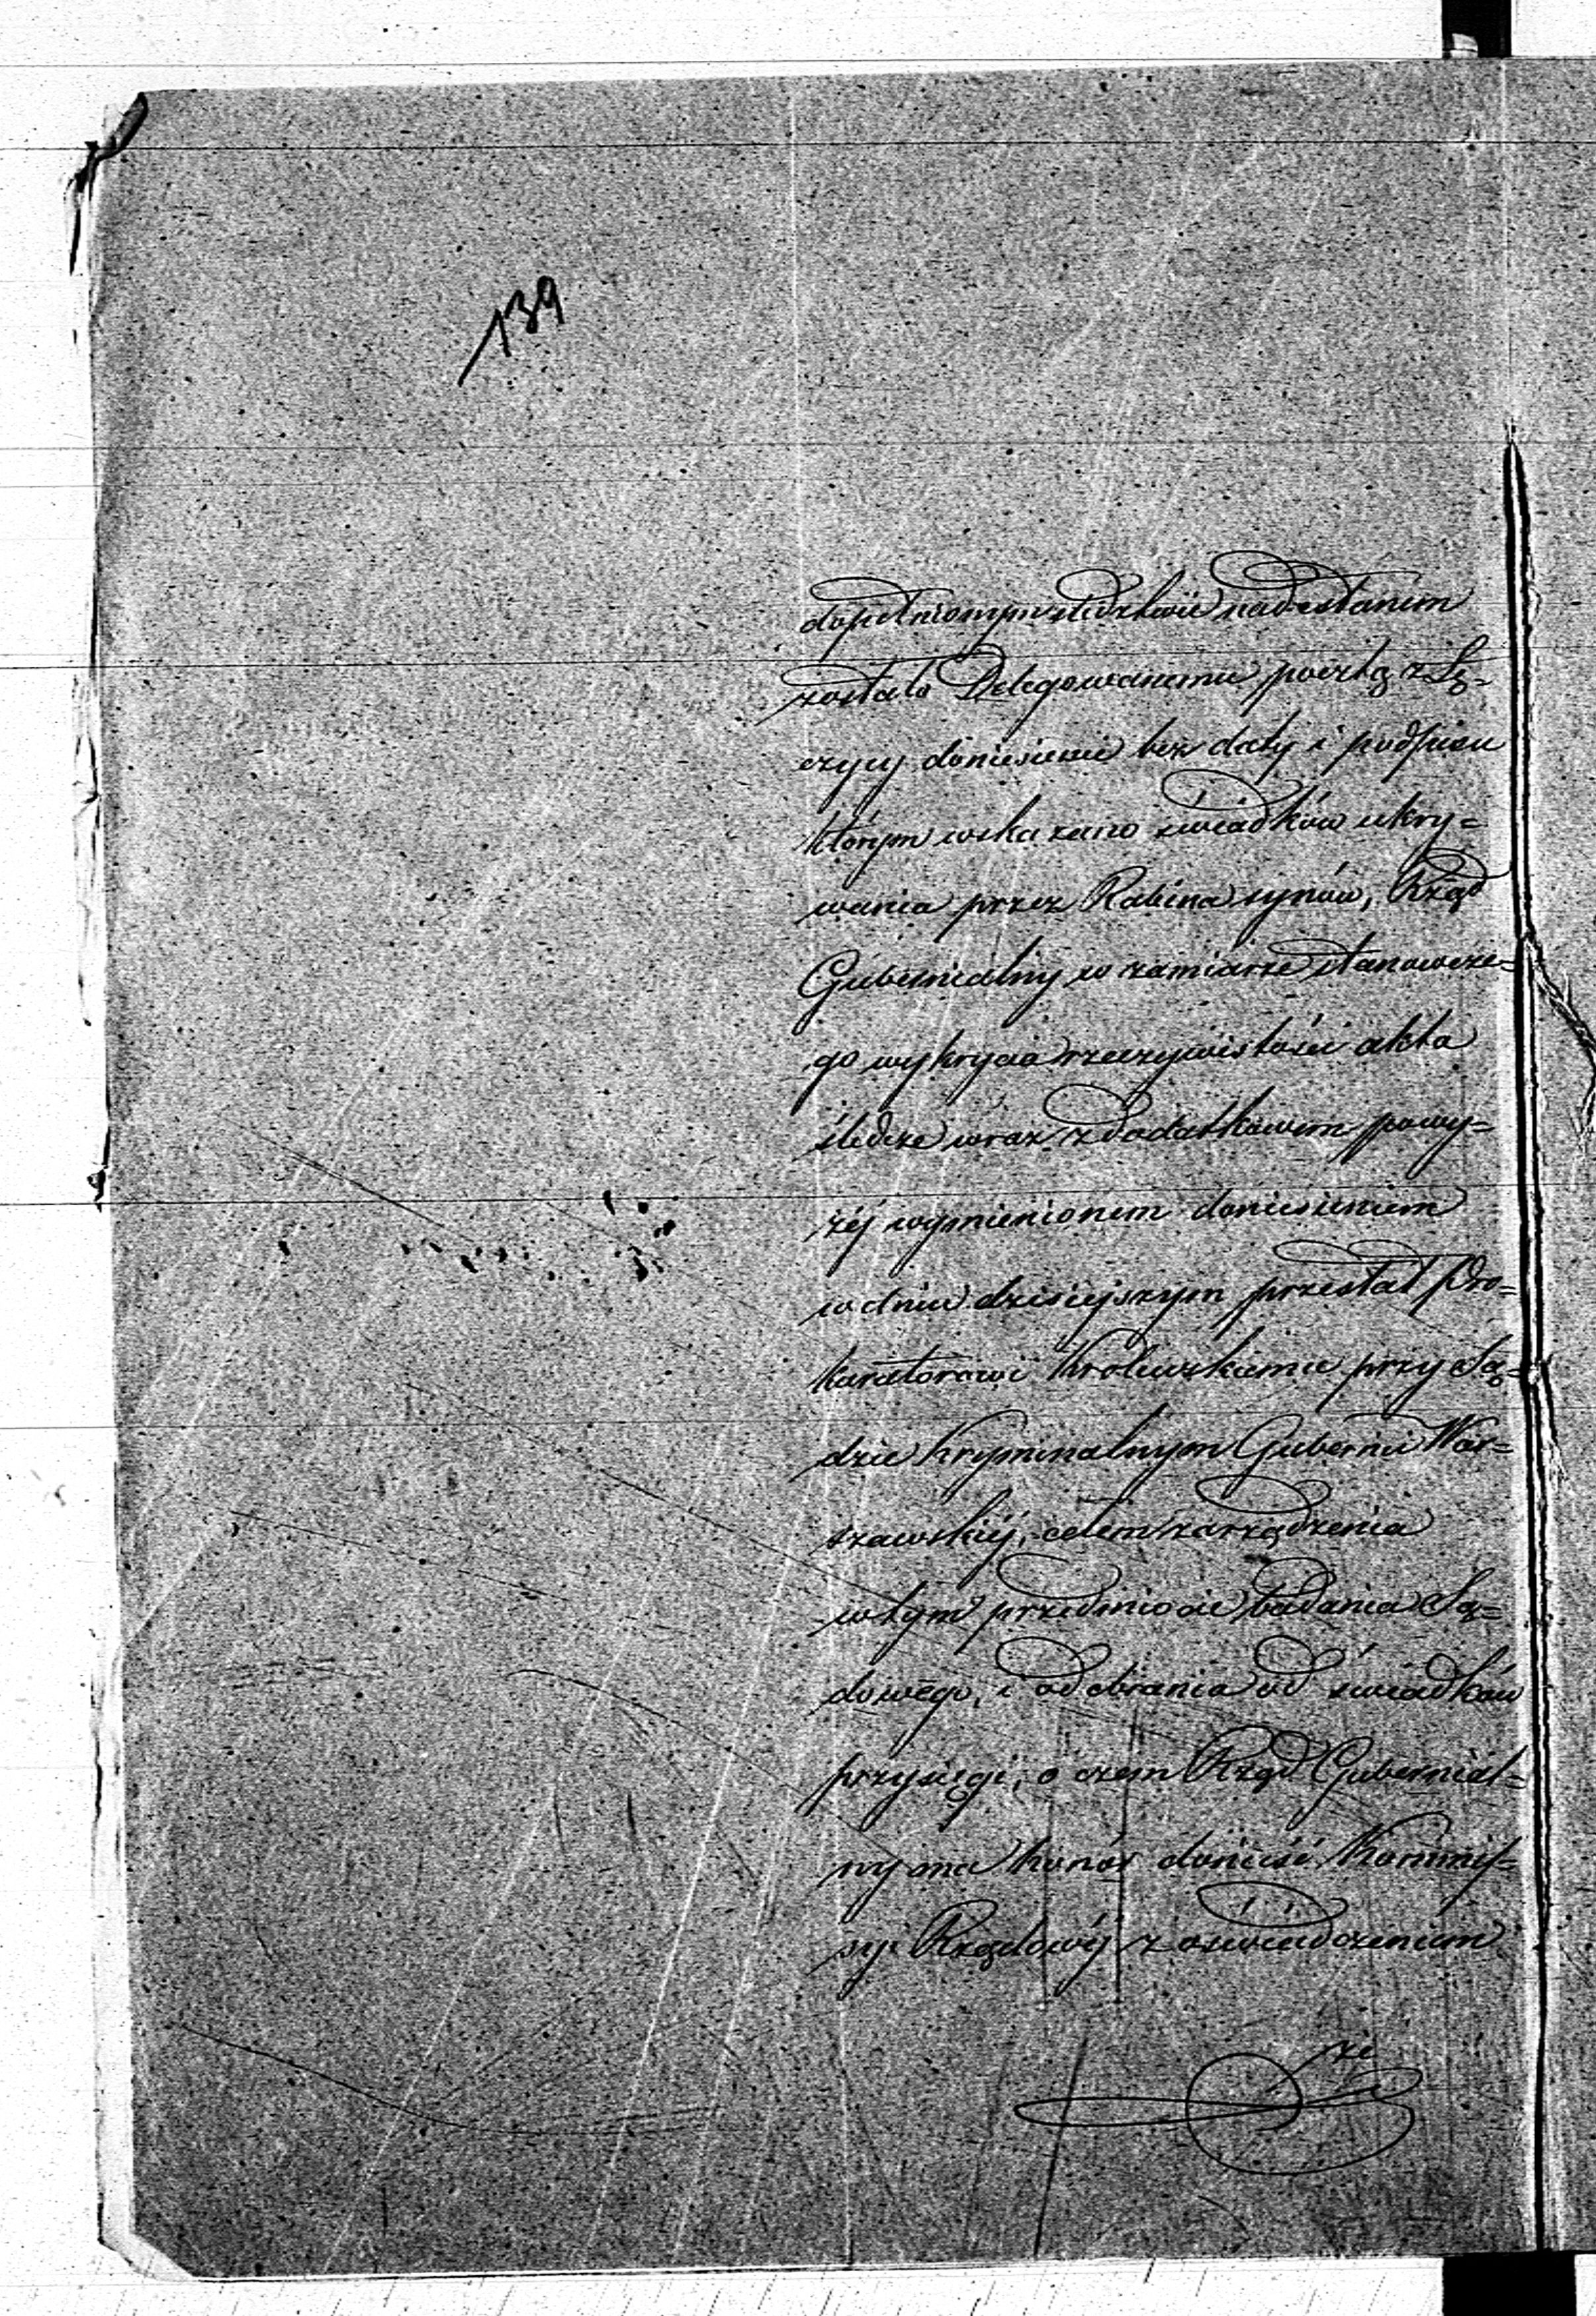 139
dopełnionym śledztwie nadesłanem
zostało Delegowanemu pocztą z Łę=
czycy doniesienie bez daty i podpisu
którym wskazano świadków ukry=
wania przez Rabina synów, Rząd
Gubernialny w zamiarze stanowcze=
go wykrycia rzeczywistości akta
śledcze wraz z dodatkowem powy=
żéj wymienionem doniesieniem
w dniu dzisiejszym przesłał Pro=
kuratorowi Królewskiemu przy Są=
dzie Kryminalnym Gubernii War=
szawskiéj, celem zarządzenia
w tym przedmiocie badania Są=
dowego, i odebrania od świadków
przysięgi, o czem Rząd Gubernial=
ny ma honor donieść Kommis=
syi Rządowéj z oświadczeniem
że